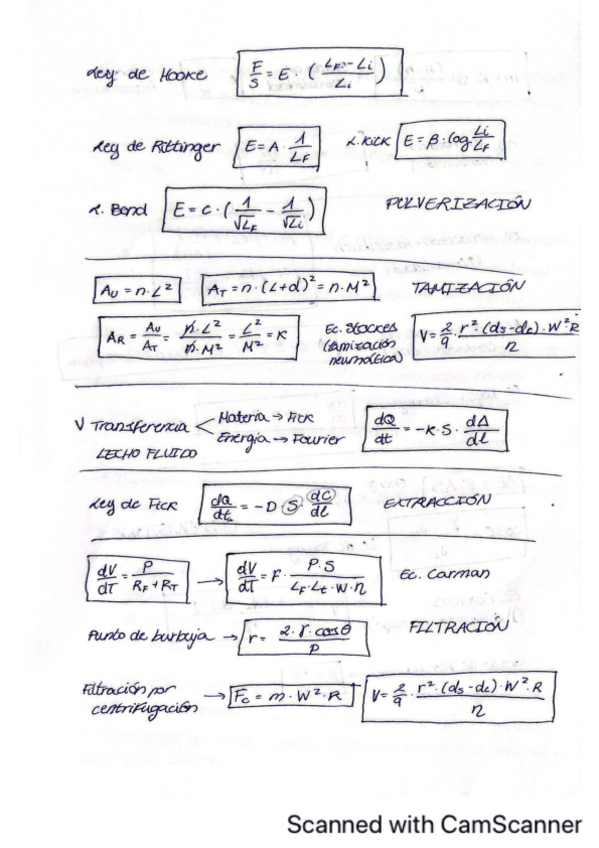 Ley de Hooke F/S = E · (LF - Li / Li)
Ley de Rittinger E = A · 1/LF L. Kick E = β · log Li/LF
L. Bond E = C · (1/√LF - 1/√Li) PULVERIZACIÓN
AU = n · L² AT = n · (L+d)² = n · M² TAMIZACIÓN
AR = AU/AT = n · L²/n · M² = L²/M² = K Ec. Stockes (tamización neumática) V = 2/9 · r² · (ds - dL) · W² · R / η
V Transferencia Materia → Fick
Energía → Fourier dQ/dt = -K · S · dΔ/dl
LECHO FLUIDO
Ley de Fick dQ/dt = -D · S · dC/dl EXTRACCIÓN
dV/dT = P/RF + RT → dV/dT = F · P · S / LF · Lt · W · η Ec. Carman
Punto de burbuja → r = 2 · γ · cosθ / P FILTRACIÓN
Filtración por centrifugación → Fc = m · W² · R V = 2/9 · r² · (ds - dL) · W² · R / η
Scanned with CamScanner